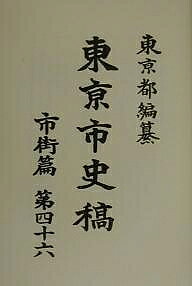 東京都編纂
東京市史稿
市街篇 第四十六